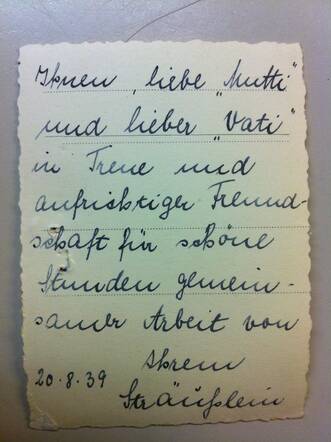 Ihnen, liebe „Mutti"
und lieber „Vati"
in Treue und
aufrichtiger Freund-
schaft für schöne
Stunden gemein-
samer Arbeit von
Ihrem
20.8.39 Sträußlein